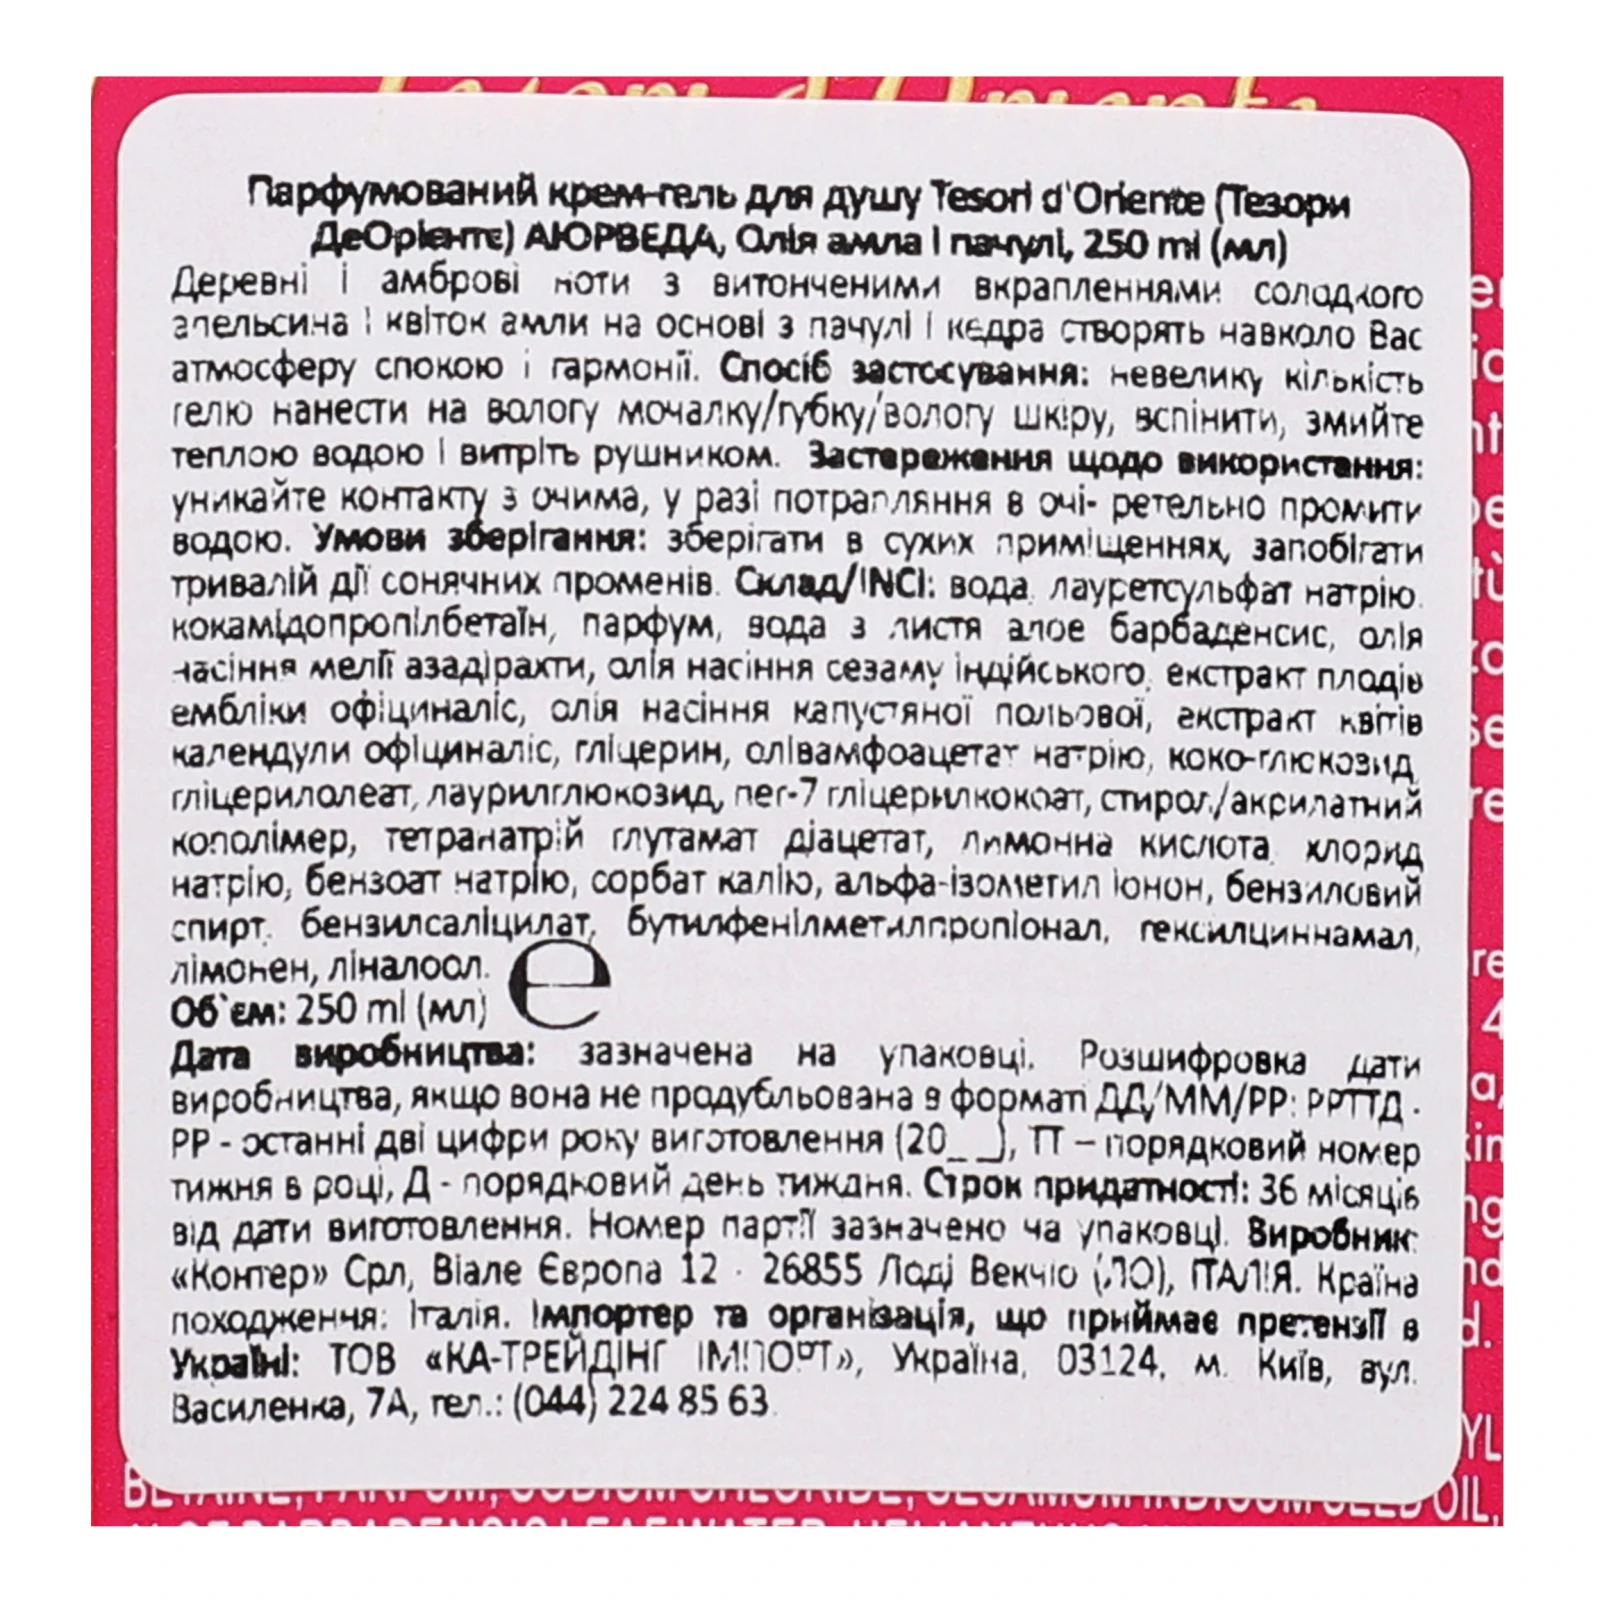 Tesori d'Oriente
Парфумований крем-гель для душу Tesori d'Oriente (Тезори
ДеОрієнтє) АЮРВЕДА, Олія амла і пачулі, 250 ml (мл)
Деревні і амброві ноти з витонченими вкрапленнями солодкого
апельсина і квіток амли на основі з пачулі і кедра створять навколо Вас
атмосферу спокою і гармонії. Спосіб застосування: невелику кількість
гелю нанести на вологу мочалку/губку/вологу шкіру, вспінити, змийте
теплою водою і витріть рушником. Застереження щодо використання:
уникайте контакту з очима, у разі потрапляння в очі- ретельно промити
водою. Умови зберігання: зберігати в сухих приміщеннях, запобігати
тривалій дії сонячних променів. Склад/INCI: вода, лауретсульфат натрію,
кокамідопропілбетаїн, парфум, вода з листя алое барбаденсис, олія
насіння мелії азадірахти, олія насіння сезаму індійського, екстракт плодів
ембліки офіциналіс, олія насіння капустяної польової, екстракт квітів
календули офіциналіс, гліцерин, олівамфоацетат натрію, коко-глюкозид,
гліцерилолеат, лаурилглюкозид, пег-7 гліцерилкокоат, стирол/акрилатний
кополімер, тетранатрій глутамат діацетат, лимонна кислота, хлорид
натрію, бензоат натрію, сорбат калію, альфа-ізометил іонон, бензиловий
спирт, бензилсаліцилат, бутилфенілметилпропіонал, гексилциннамал,
лімонен, ліналоол.
Об`єм: 250 ml (мл) e
Дата виробництва: зазначена на упаковці. Розшифровка дати
виробництва, якщо вона не продубльована в форматі ДД/ММ/РР: РРТТД -
РР - останні дві цифри року виготовлення (20_ _), ТТ – порядковий номер
тижня в році, Д - порядковий день тиждня. Строк придатності: 36 місяців
від дати виготовлення. Номер партії зазначено на упаковці. Виробник:
«Контер» Срл, Віале Європа 12 - 26855 Лоді Векчіо (ЛО), ІТАЛІЯ. Країна
походження: Італія. Імпортер та організація, що приймає претензії в
Україні: ТОВ «КА-ТРЕЙДІНГ ІМПОРТ», Україна, 03124, м. Київ, вул.
Василенка, 7А, тел.: (044) 224 85 63
BETAINE, PARFUM, SODIUM CHLORIDE, SESAMUM INDICUM SEED OIL,